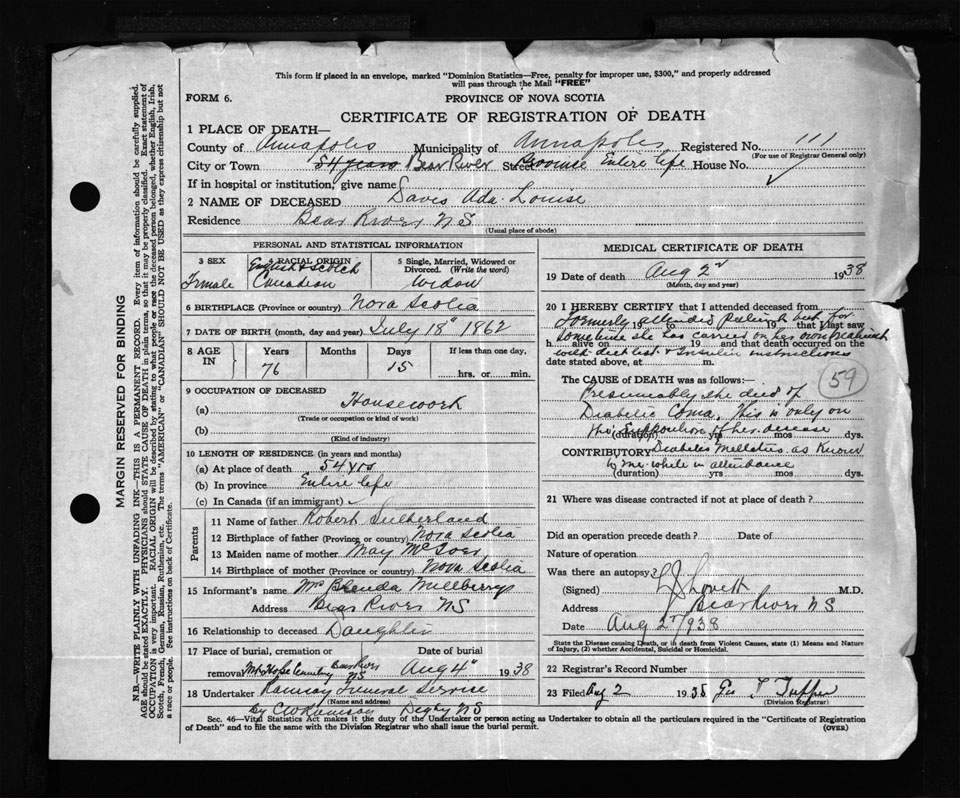 This form if placed in an envelope, marked "Dominion Statistics—Free, penalty for improper use, $300," and properly addressed
will pass through the Mail "FREE"
FORM 6.
PROVINCE OF NOVA SCOTIA
CERTIFICATE OF REGISTRATION OF DEATH
1 PLACE OF DEATH—
County of Annapolis Municipality of Annapolis Registered No. 111
(For use of Registrar General only)
City or Town 54 years Bear River Street Province Entire life House No.
If in hospital or institution, give name
2 NAME OF DECEASED Davis Ada Louise
Residence Bear River NS
(Usual place of abode)
PERSONAL AND STATISTICAL INFORMATION
3 SEX Female
4 RACIAL ORIGIN English & Scotch Canadian
5 Single, Married, Widowed or Divorced. (Write the word) Widow
6 BIRTHPLACE (Province or country) Nova Scotia
7 DATE OF BIRTH (month, day and year) July 18" 1862
8 AGE IN Years 76 Months Days 15 If less than one day, ... hrs. or ... min.
9 OCCUPATION OF DECEASED
(a) Housework
(Trade or occupation or kind of work)
(b)
(Kind of industry)
10 LENGTH OF RESIDENCE (in years and months)
(a) At place of death 54 yrs
(b) In province Entire life
(c) In Canada (if an immigrant)
Parents
11 Name of father Robert Sutherland
12 Birthplace of father (Province or country) Nova Scotia
13 Maiden name of mother May
14 Birthplace of mother (Province or country) Nova Scotia
15 Informant's name Mrs Millberry
Address Bear River NS
16 Relationship to deceased Daughter
17 Place of burial, cremation or removal Mt Hope Cemetery Bear River NS Date of burial Aug 4" 1938
18 Undertaker Ramsay Funeral Service
(Name and address)
By C W Ramsay Digby NS
MEDICAL CERTIFICATE OF DEATH
19 Date of death Aug 2" 1938
(Month, day and year)
20 I HEREBY CERTIFY that I attended deceased from
Formerly attended Patient but for
19 to 19 that I last saw
some time she has carried on her own treatment
h alive on 19 and that death occurred on the
with diet list & Insulin instructions
date stated above, at m.
The CAUSE of DEATH was as follows:— 59
Presumably she died of
Diabetic Coma. This is only on
the supposition of her disease
(duration) yrs mos dys.
CONTRIBUTORY Diabetes Mellitus as Known
by me while in attendance
(duration) yrs mos dys.
21 Where was disease contracted if not at place of death?
Did an operation precede death? Date of
Nature of operation
Was there an autopsy?
(Signed) Lovett M.D.
Address Bear River NS
Date Aug 2" 1938
State the Disease causing Death, or in death from Violent Causes, state (1) Means and Nature
of Injury, (2) whether Accidental, Suicidal or Homicidal.
22 Registrar's Record Number
23 Filed Aug 2 1938 Geo T Tupper
(Division Registrar)
Sec. 46—Vital Statistics Act makes it the duty of the Undertaker or person acting as Undertaker to obtain all the particulars required in the "Certificate of Registration
of Death" and to file the same with the Division Registrar who shall issue the burial permit.
(OVER)
MARGIN RESERVED FOR BINDING
N.B.—WRITE PLAINLY WITH UNFADING INK—THIS IS A PERMANENT RECORD. Every item of information should be carefully supplied.
AGE should be stated EXACTLY. PHYSICIANS should STATE CAUSE OF DEATH in plain terms, so that it may be properly classified. Exact statement of
OCCUPATION is very important. RACIAL ORIGIN will be described by stating to what people or race the deceased person belonged, whether English, Irish,
Scotch, French, German, Russian, Ruthenian, etc. The terms "AMERICAN" or "CANADIAN" SHOULD NOT BE USED as they express citizenship but not
a race or people. See instructions on back of Certificate.